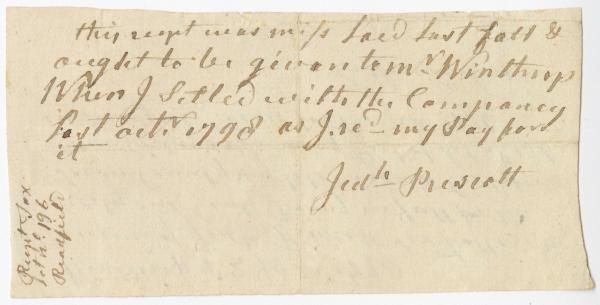 this recpt was miss laed last fall &
ought to be given to mr. Winthrop
When I Setled with the Companey
Last octr. 1798 as I red. my Pay for
it
Jedh. Prescott
Recpt Tax
Lot No. 196
Readfield